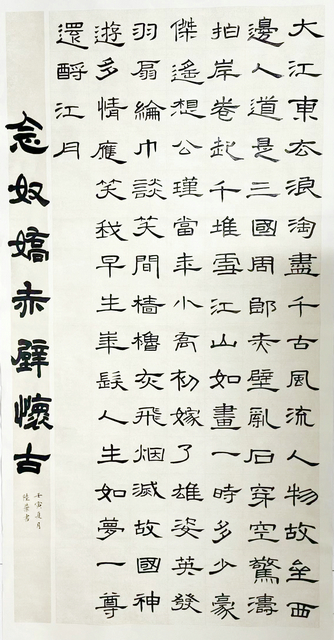 大江東去浪淘盡千古風流人物故垒西
邊人道是三國周郎赤壁亂石穿空驚濤
拍岸卷起千堆雪江山如畫一時多少豪
傑遙想公瑾當年小喬初嫁了雄姿英發
羽扇綸巾談笑間檣櫓灰飛烟滅故國神
遊多情應笑我早生華髮人生如夢一尊
還酹江月
念奴嬌赤壁懷古
壬寅夏月